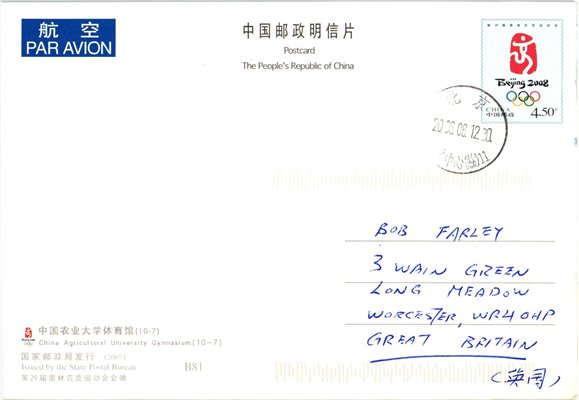 航空
PAR AVION
中国邮政明信片
Postcard
The People's Republic of China
Beijing 2008
CHINA
中国邮政
4.50元
北京
2008.08.12.20
BOB FARLEY
3 WAIN GREEN
LONG MEADOW
WORCESTER, WR4 0HP
GREAT BRITAIN
(英国)
中国农业大学体育馆(10-7)
China Agricultural University Gymnasium(10-7)
国家邮政局发行 (2007)
Issued by the State Postal Bureau
B81
第29届奥林匹克运动会会徽